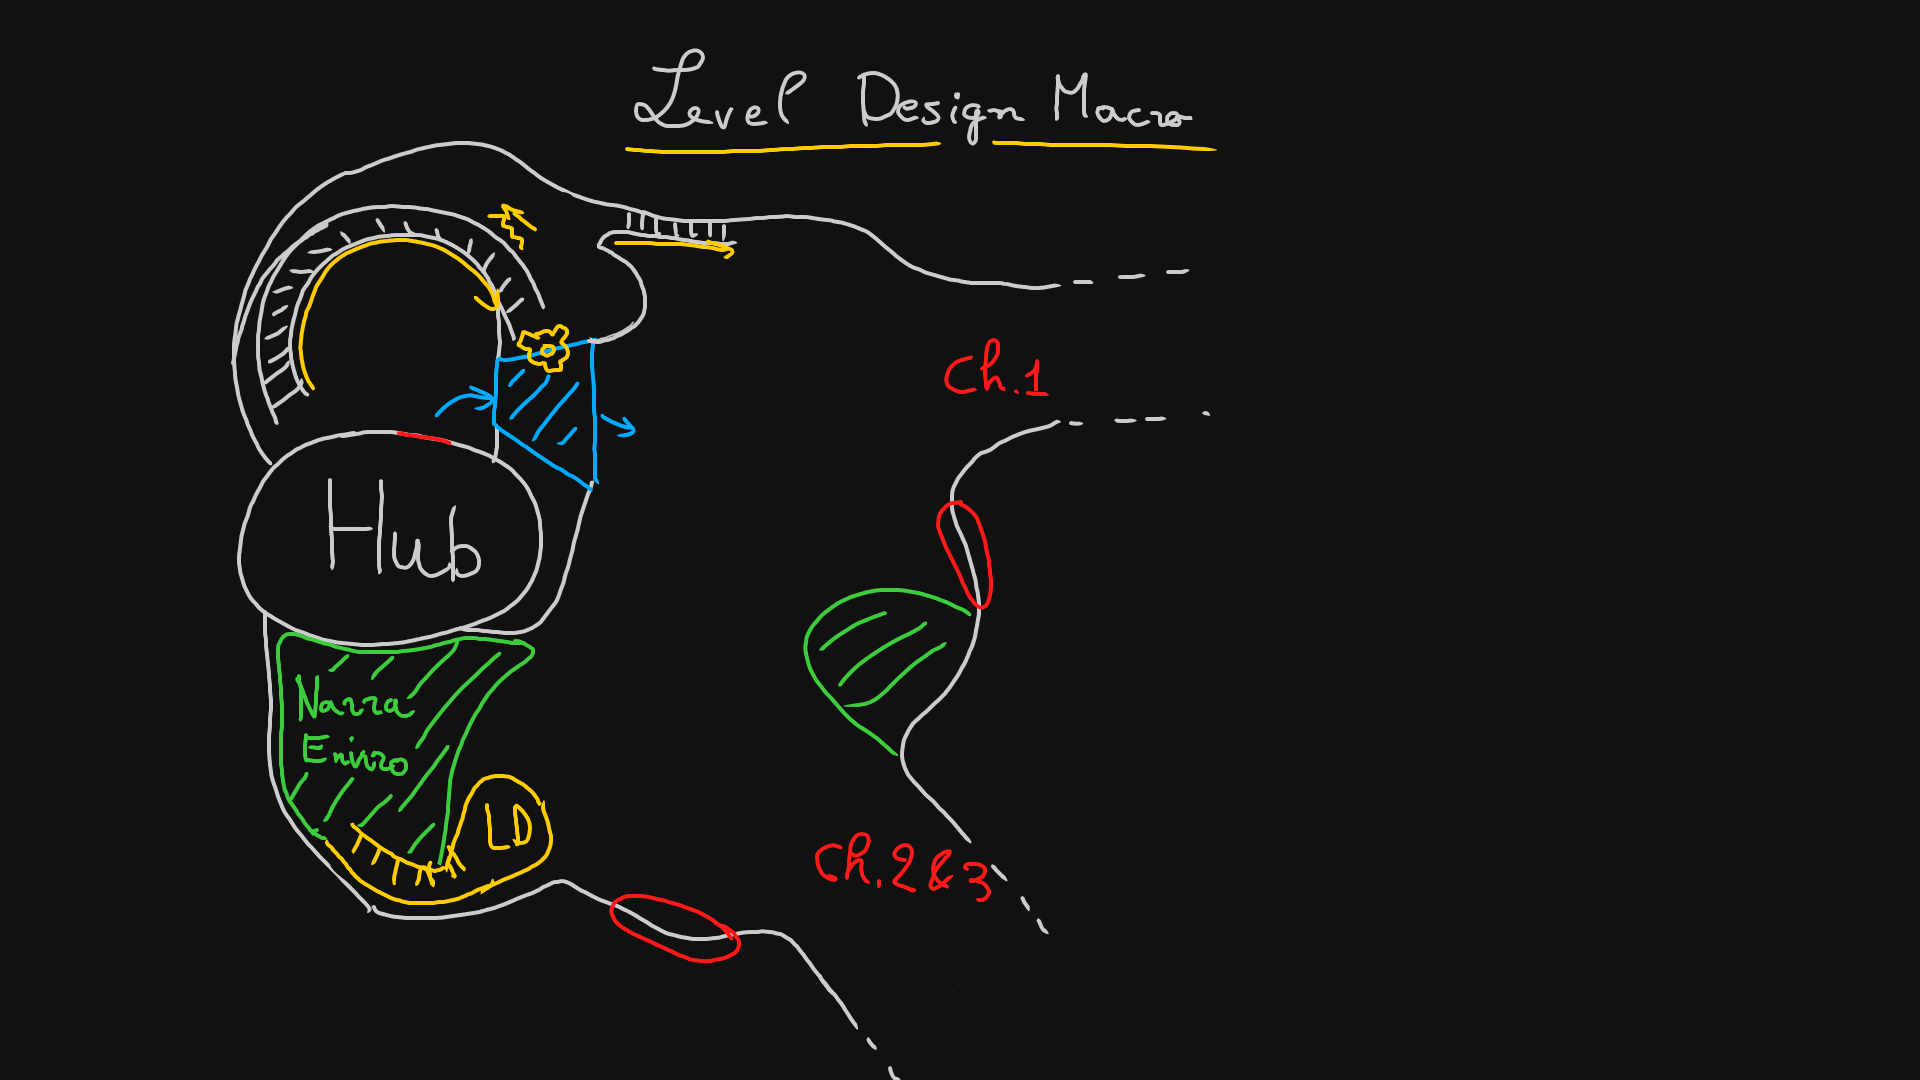 Level Design Macro
Ch.1
Hub
Narra
Enviro
LD
Ch.2&3